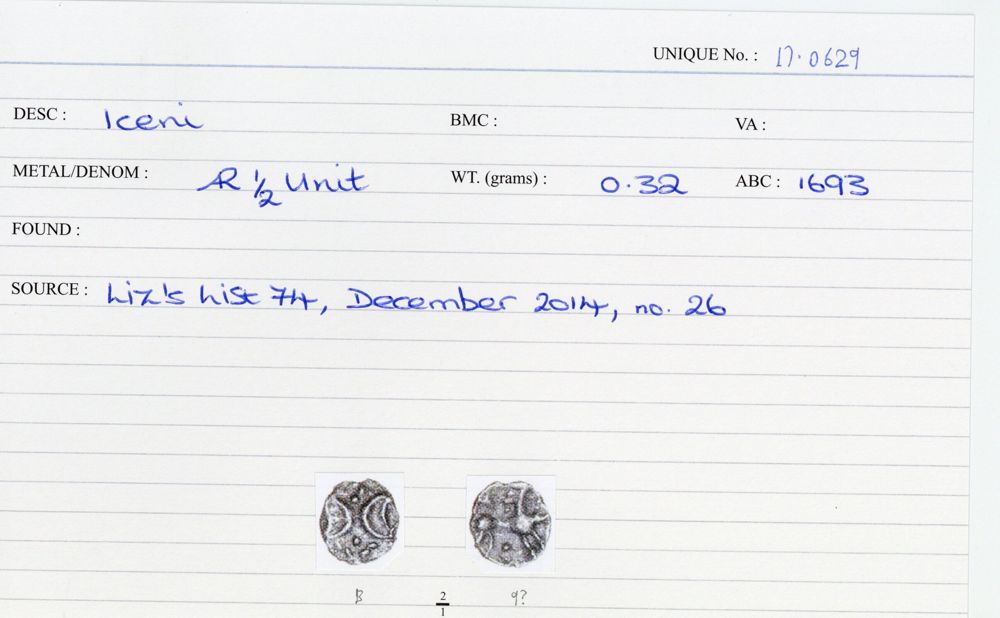 UNIQUE No. : 17.0629
DESC : Iceni BMC : VA :
METAL/DENOM : AR ½ Unit WT. (grams) : 0.32 ABC : 1693
FOUND :
SOURCE : Liz's List 74, December 2014, no. 26
B 2/1 9?